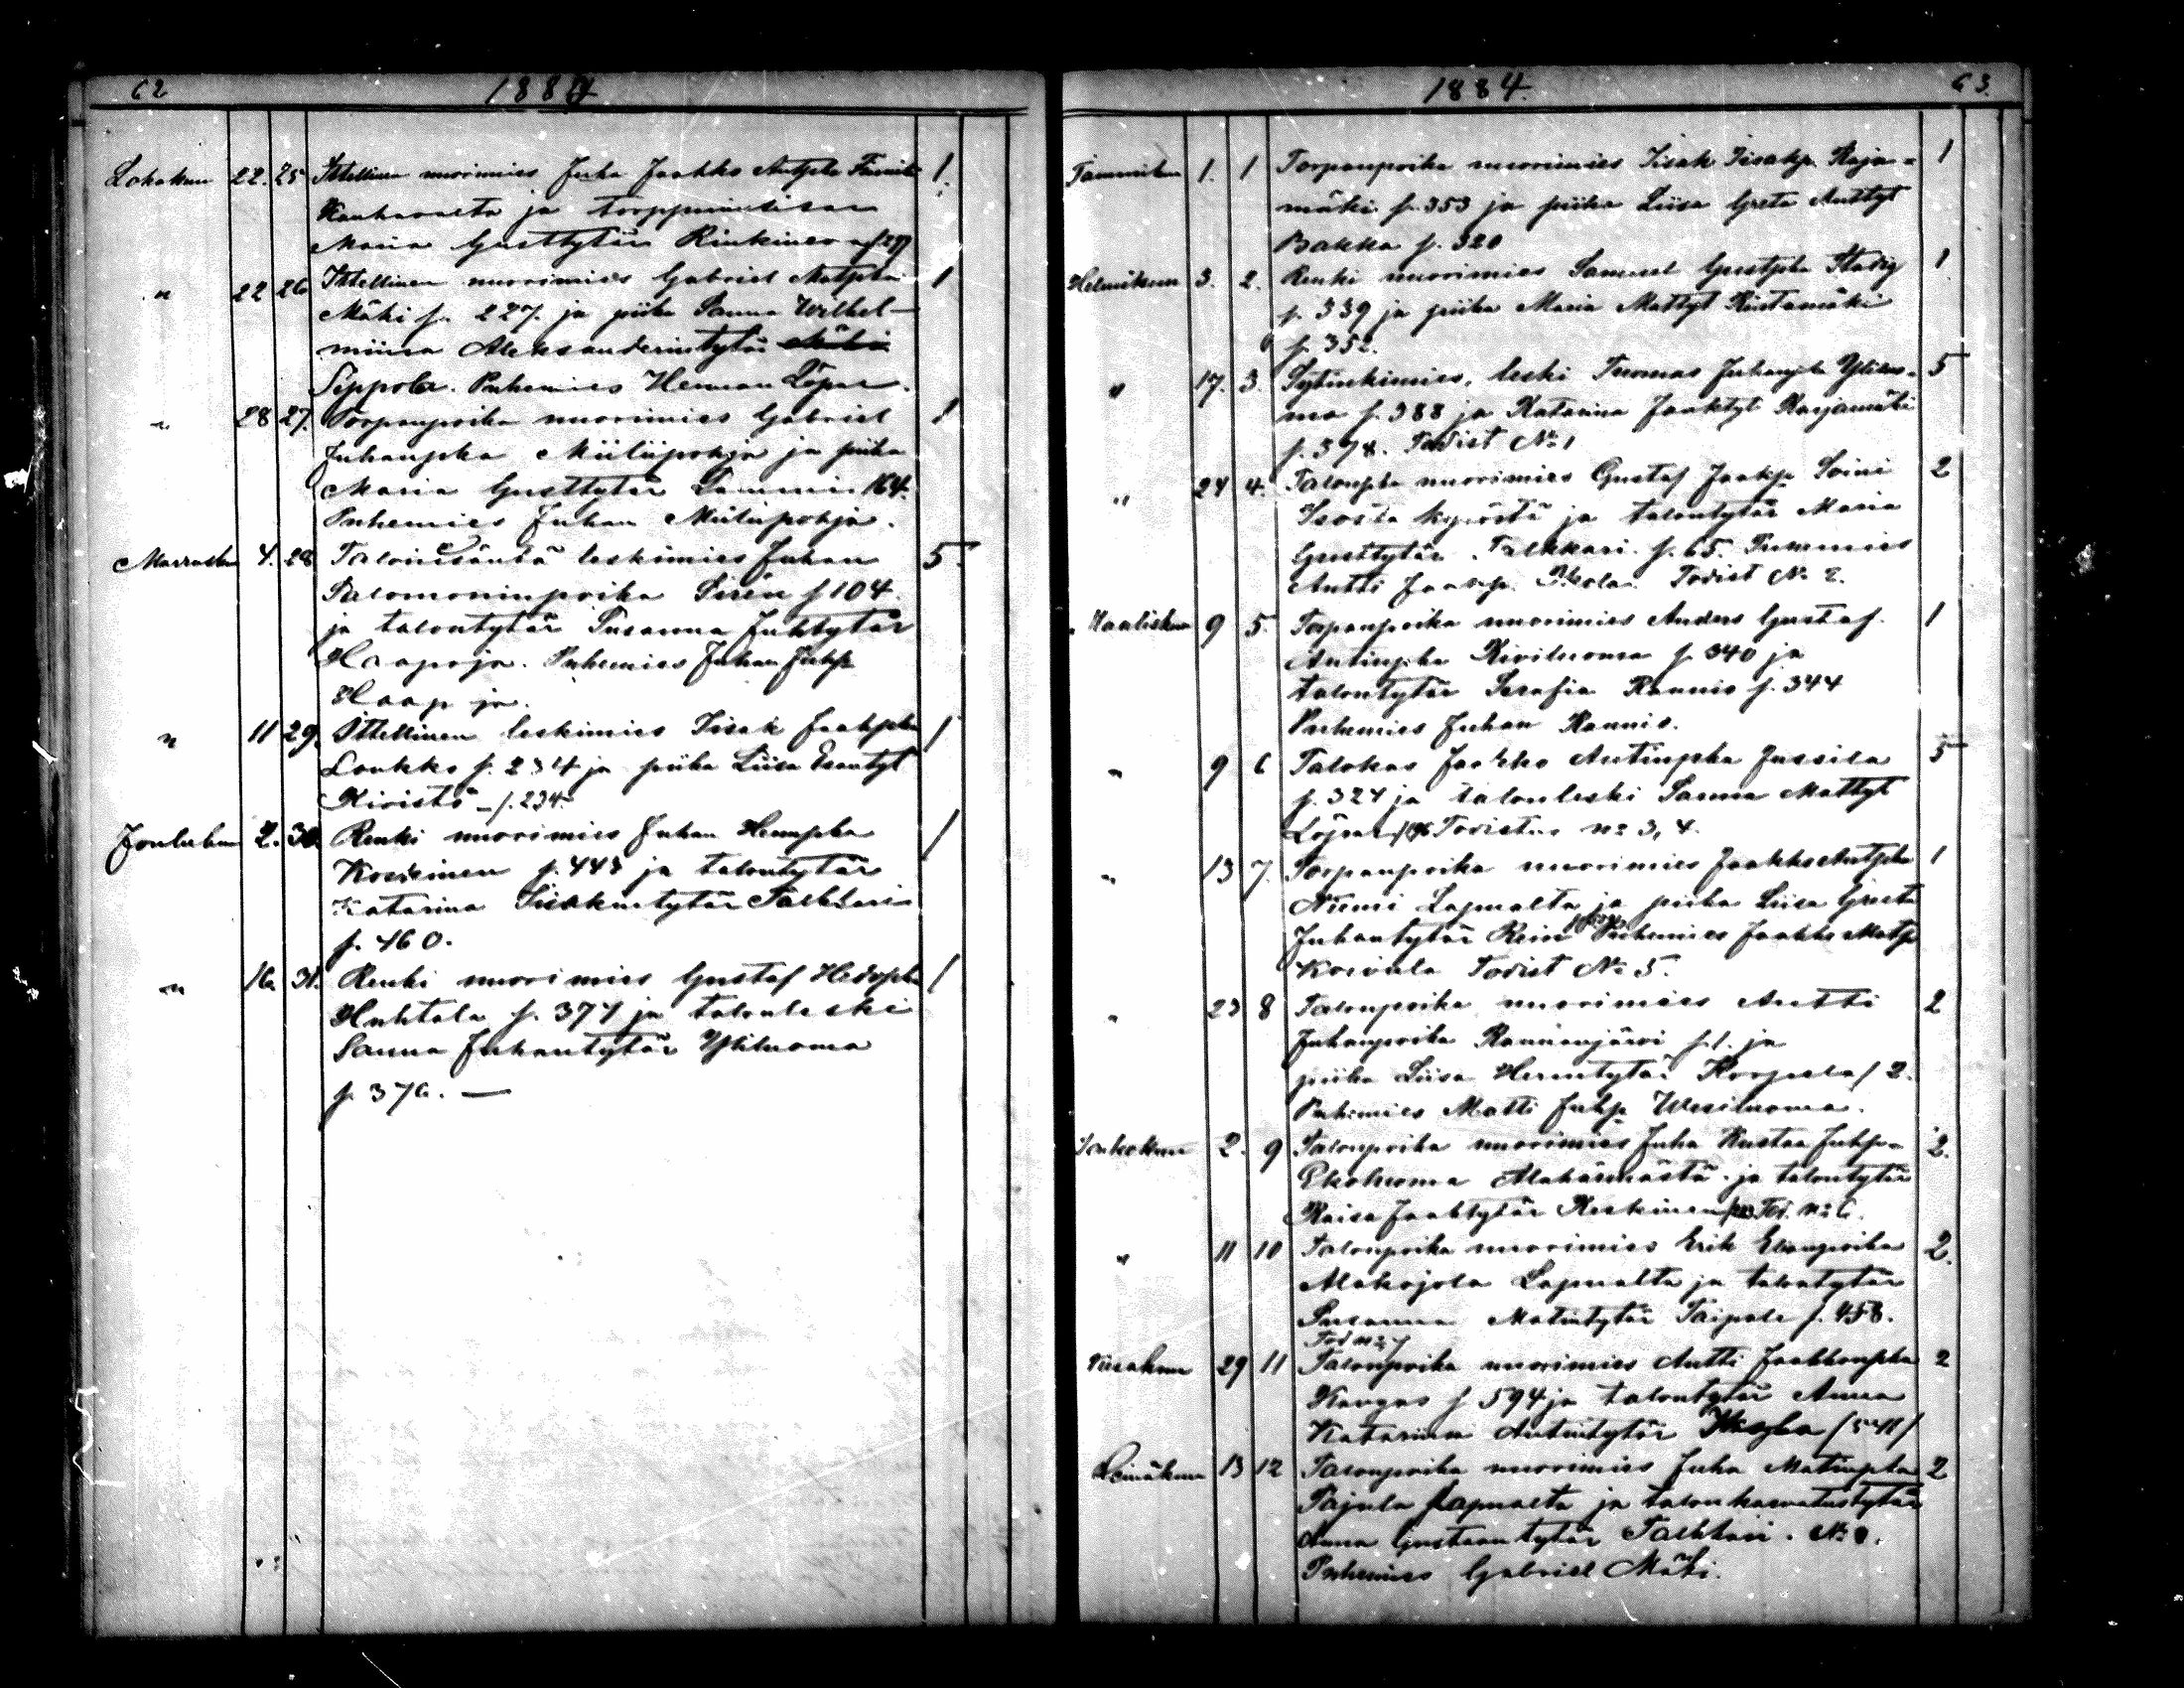 62 1883
Lokakun 22. 25 Ittellinen nuorimies Juha Jaakko Antpka 1
Kauhavalta ja torpp
Maria Gusttytär Rinkinen
" 22 26 Ittellinen nuorimies Gabriel Matpka 1
Mäki p. 227. ja piika Sanna Wilhel-
miina Aleksanderintytär
Seppola. Puhemies Herman Löpar.
" 28 27. Torpanpoika nuorimies Gabriel 1
Juhanpka Miiliipohja ja piika
Maria Gusttytär Lammi 164.
Puhemies Juhan Miiliipohja.
Marraskun 4. 28 Taloinisäntä leskimies Juhan 5.
Salomoninpoika Sirén p 104.
ja talontytär Susanna Juhtytär
Haapoja. Puhemies Juhan Juhp.
Haapoja.
" 11 29. Ittellinen leskimies Iisak Jaakpka 1
Loukko p. 234 ja piika Liisa Esantyt
Kivistö - p. 234.
Joulukun 2. 30. Renki nuorimies Juhan Hermpka 1
Koskinen p. 443 ja talontytär
Katarina Iisakintytär Talkkari
p. 460.
" 16. 31. Renki nuorimies Gustaf Hedvpka 1
Huhtala p. 374 ja talonleski
Sanna Juhantytär Yliluoma
p. 376. —
1884. 63.
Tammikun 1. 1 Torpanpoika nuorimies Iisak Iisakp. Raja- 1
mäki p. 353 ja piika Liisa Greta Anttyt
Bakka p. 320
Helmikun 3. 2. Renki nuorimies Samuel Gustpka Stadig 1
p. 339 ja piika Maria Mattyt Riistamäki
p. 352.
" 17. 3. Sytinkimies, leski Tuomas Juhanpka Yliluo- 5
ma p. 388 ja Katarina Jaaktyt Karjamäki
p. 378. Todist No 1
" 24 4. Talonpka nuorimies Gustaf Jaakp. Soini 2
Isosta kyröstä ja talontytär Maria
Gusttytär Talkkari. p. 65. Puhemies
Antti Jaakp. Todist No 2.
Maaliskun 9 5. Torpanpoika nuorimies Anders Gustaf 1
Antinpka Kiviluoma p. 340 ja
talontytär Serafia Rannis p. 344
Puhemies Juhan Rannis.
" 9 6 Talokas Jaakko Antinpka Jussila 5
p. 324 ja talonleski Sanna Mattyt
Löpar Todistus no 3, 4.
" 13 7. Torpanpoika nuorimies Jaakko Antpka 1
Niemi Lapualta ja piika Liisa Greeta
Juhantytär Rein Puhemies Jaakko Matp
Koivula Todist No 5.
" 23 8 Talonpoika nuorimies Antti 2
Juhanpoika Rannanjärvi p. 1. ja
piika Liisa Hermtytär Korpela p 2.
Puhemies Matti Juhp. Wesiluoma.
Toukokun 2. 9 Talonpoika nuorimies Juha Kustaa Juhp. 2.
Ekoluoma Alahärmästä ja talontytär
Kaisa Jaaktytär Keskinen Tod. no 6.
" 11 10 Talonpoika nuorimies Erik Elianpoika 2.
Alakojola Lapualta ja talontytär
Susanna Matintytär Taipale p. 458.
Tod no 7
Kesakun 29 11 Talonpoika nuorimies Antti Jaakkonpka 2
Kangas p 594 ja talontytär Anna
Katarina Antintytär
Heinäkun 13 12 Talonpoika nuorimies Juha Matinpka 2
Pajula Lapualta ja talonkasvatustytär
Anna Gustaantytär Talkkari. No 8.
Puhemies Gabriel Mäki.